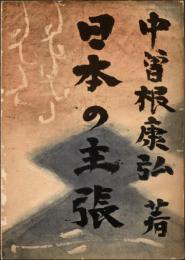 中曽根康弘 著
日本の主張